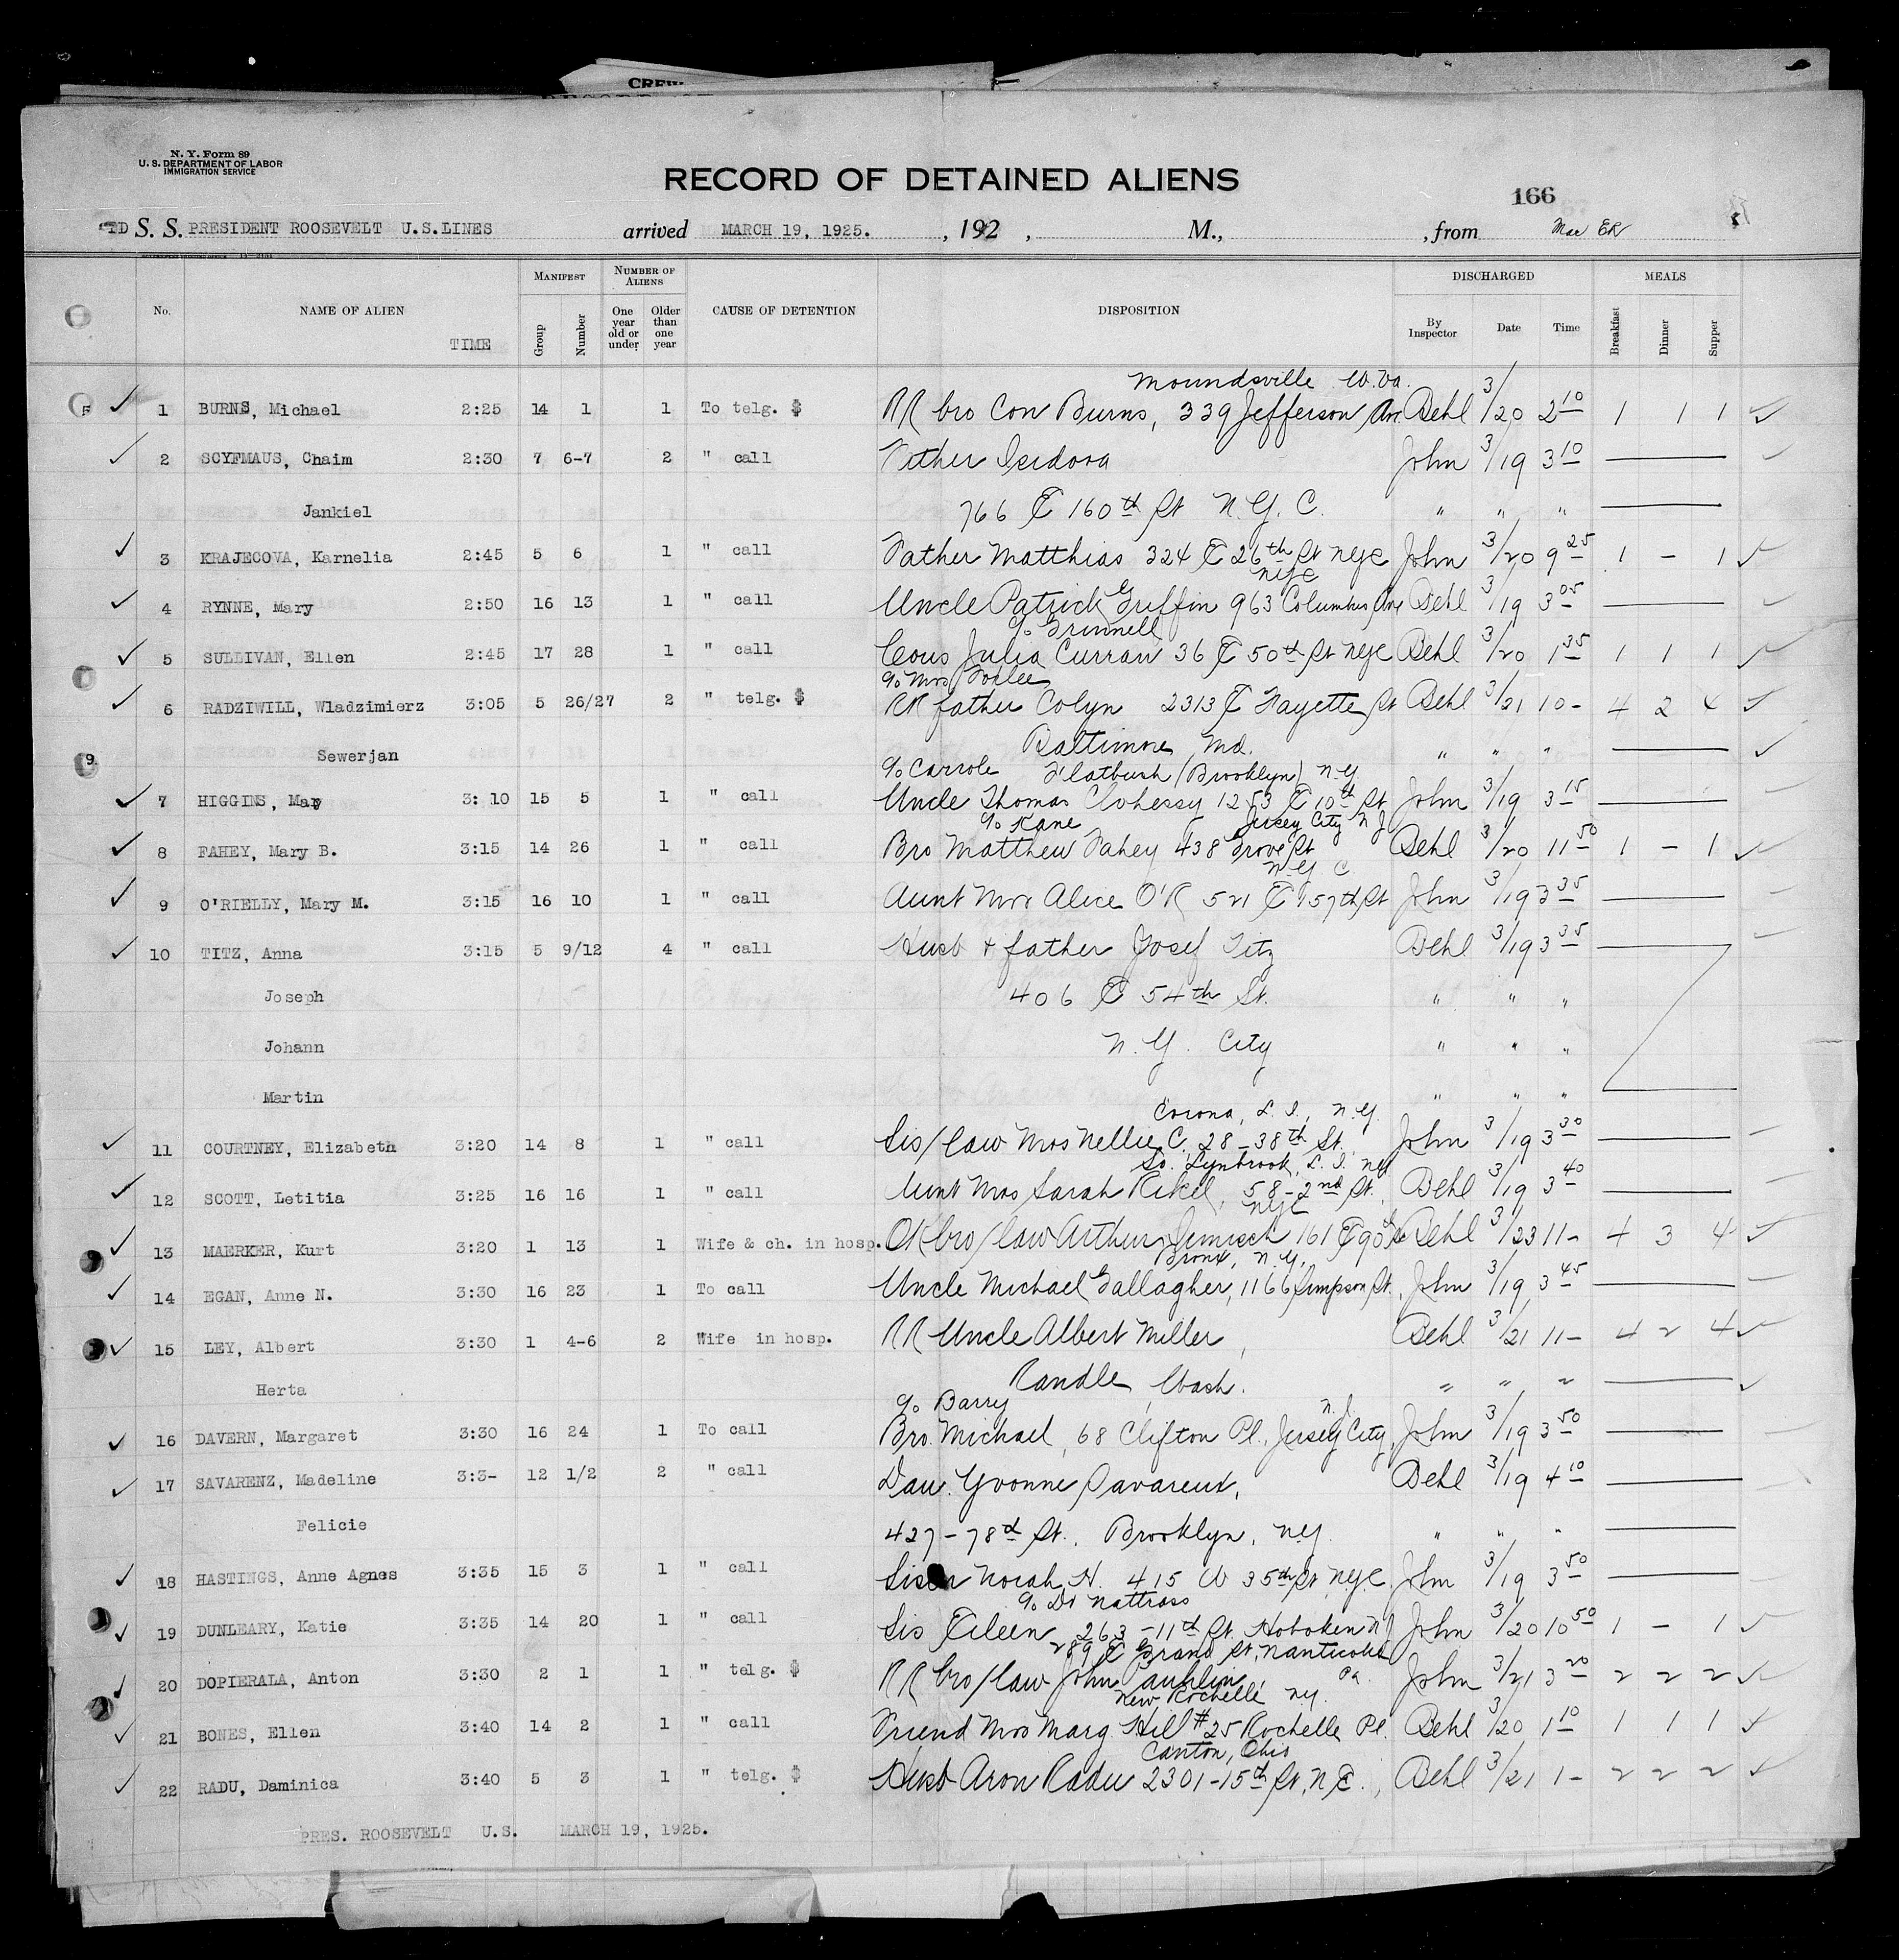 CREW
N. Y. Form 89
U. S. DEPARTMENT OF LABOR
IMMIGRATION SERVICE
RECORD OF DETAINED ALIENS
166
S. S. PRESIDENT ROOSEVELT U.S.LINES arrived MARCH 19, 1925. , 192 , M., , from
No. NAME OF ALIEN TIME MANIFEST Group Number NUMBER OF ALIENS One year old or under Older than one year CAUSE OF DETENTION DISPOSITION DISCHARGED By Inspector Date Time MEALS Breakfast Dinner Supper
Moundsville W.Va.
1 BURNS, Michael 2:25 14 1 1 To telg. $ RR bro Con Burns, 339 Jefferson Ave Behl 3/20 2 10 1 1 1
2 SCYFMAUS, Chaim 2:30 7 6-7 2 " call Father Isidora John 3/19 3 10
Jankiel 766 E 160th St N.Y.C. " " "
3 KRAJECOVA, Karnelia 2:45 5 6 1 " call Father Matthias 324 E 26th St NYC John 3/20 9 25 1 - 1
NYC
4 RYNNE, Mary 2:50 16 13 1 " call Uncle Patrick Griffin 963 Columbus Ave Behl 3/19 3 05
c/o Grinnell
5 SULLIVAN, Ellen 2:45 17 28 1 " call Cous Julia Curran 36 E 50th St NYC Behl 3/20 1 35 1 1 1
c/o Mrs
6 RADZIWILL, Wladzimierz 3:05 5 26/27 2 " telg. $ RR father Colyn 2313 E Fayette St Behl 3/21 10- 4 2 4
Sewerjan Baltimore Md. " " "
c/o Carrole Flatbush (Brooklyn) N.Y.
7 HIGGINS, May 3:10 15 5 1 " call Uncle Thomas Clohessy 1253 E 10th St John 3/19 3 15
c/o Kane Jersey City N J
8 FAHEY, Mary B. 3:15 14 26 1 " call Bro Matthew Fahey 438 Grove St Behl 3/20 11 50 1 - 1
N.Y C
9 O'RIELLY, Mary M. 3:15 16 10 1 " call Aunt Mrs Alice O'R 521 E 157th St John 3/19 3 35
10 TITZ, Anna 3:15 5 9/12 4 " call Husb + father Josef Titz Behl 3/19 3 35
Joseph 406 E 54th St. " " "
Johann N.Y. City " " "
Martin " " "
Corona, L.I., N.Y.
11 COURTNEY, Elizabeth 3:20 14 8 1 " call Sis/law Mrs Nellie C. 28-38th St. John 3/19 3 30
So. Lynbrook, L.I. NY
12 SCOTT, Letitia 3:25 16 16 1 " call Aunt Mrs Sarah 58-2nd St. Behl 3/19 3 40
NYC
13 MAERKER, Kurt 3:20 1 13 1 Wife & ch. in hosp. OK bro/law Arthur 161 E 90 St Behl 3/23 11- 4 3 4
Bronx, N.Y.
14 EGAN, Anne N. 3:30 16 23 1 To call Uncle Michael Gallagher, 1166 Simpson St. John 3/19 3 45
15 LEY, Albert 3:30 1 4-6 2 Wife in hosp. RR Uncle Albert Miller, Behl 3/21 11- 4 2 4
Herta Randle, Wash. " " "
c/o Barry N.J.
16 DAVERN, Margaret 3:30 16 24 1 To call Bro. Michael, 68 Clifton Pl., Jersey City, John 3/19 3 50
17 SAVARENZ, Madeline 3:3- 12 1/2 2 " call Dau. Yvonne Savarenx, Behl 3/19 4 10
Felicie 427-78th St., Brooklyn, N.Y. " " "
18 HASTINGS, Anne Agnes 3:35 15 3 1 " call Sis Norah H. 415 W 35th St, N.Y.C. John 3/19 3 50
c/o Dr Nattrass
19 DUNLEARY, Katie 3:35 14 20 1 " call Sis Eileen 263-11th St. Hoboken N J John 3/20 10 50 1 - 1
289 E Grand St, Nanticoke
20 DOPIERALA, Anton 3:30 2 1 1 " telg. $ RR bro/law John Pa. John 3/21 3 20 2 2 2
New Rochelle N.Y.
21 BONES, Ellen 3:40 14 2 1 " call Friend Mrs Marg Hill #25 Rochelle Pl. Behl 3/20 1 10 1 1 1
Canton, Ohio
22 RADU, Daminica 3:40 5 3 1 " telg. $ Husb Aron Radu 2301-15th St, N.E., Behl 3/21 1- 2 2 2
PRES. ROOSEVELT U.S. MARCH 19, 1925.